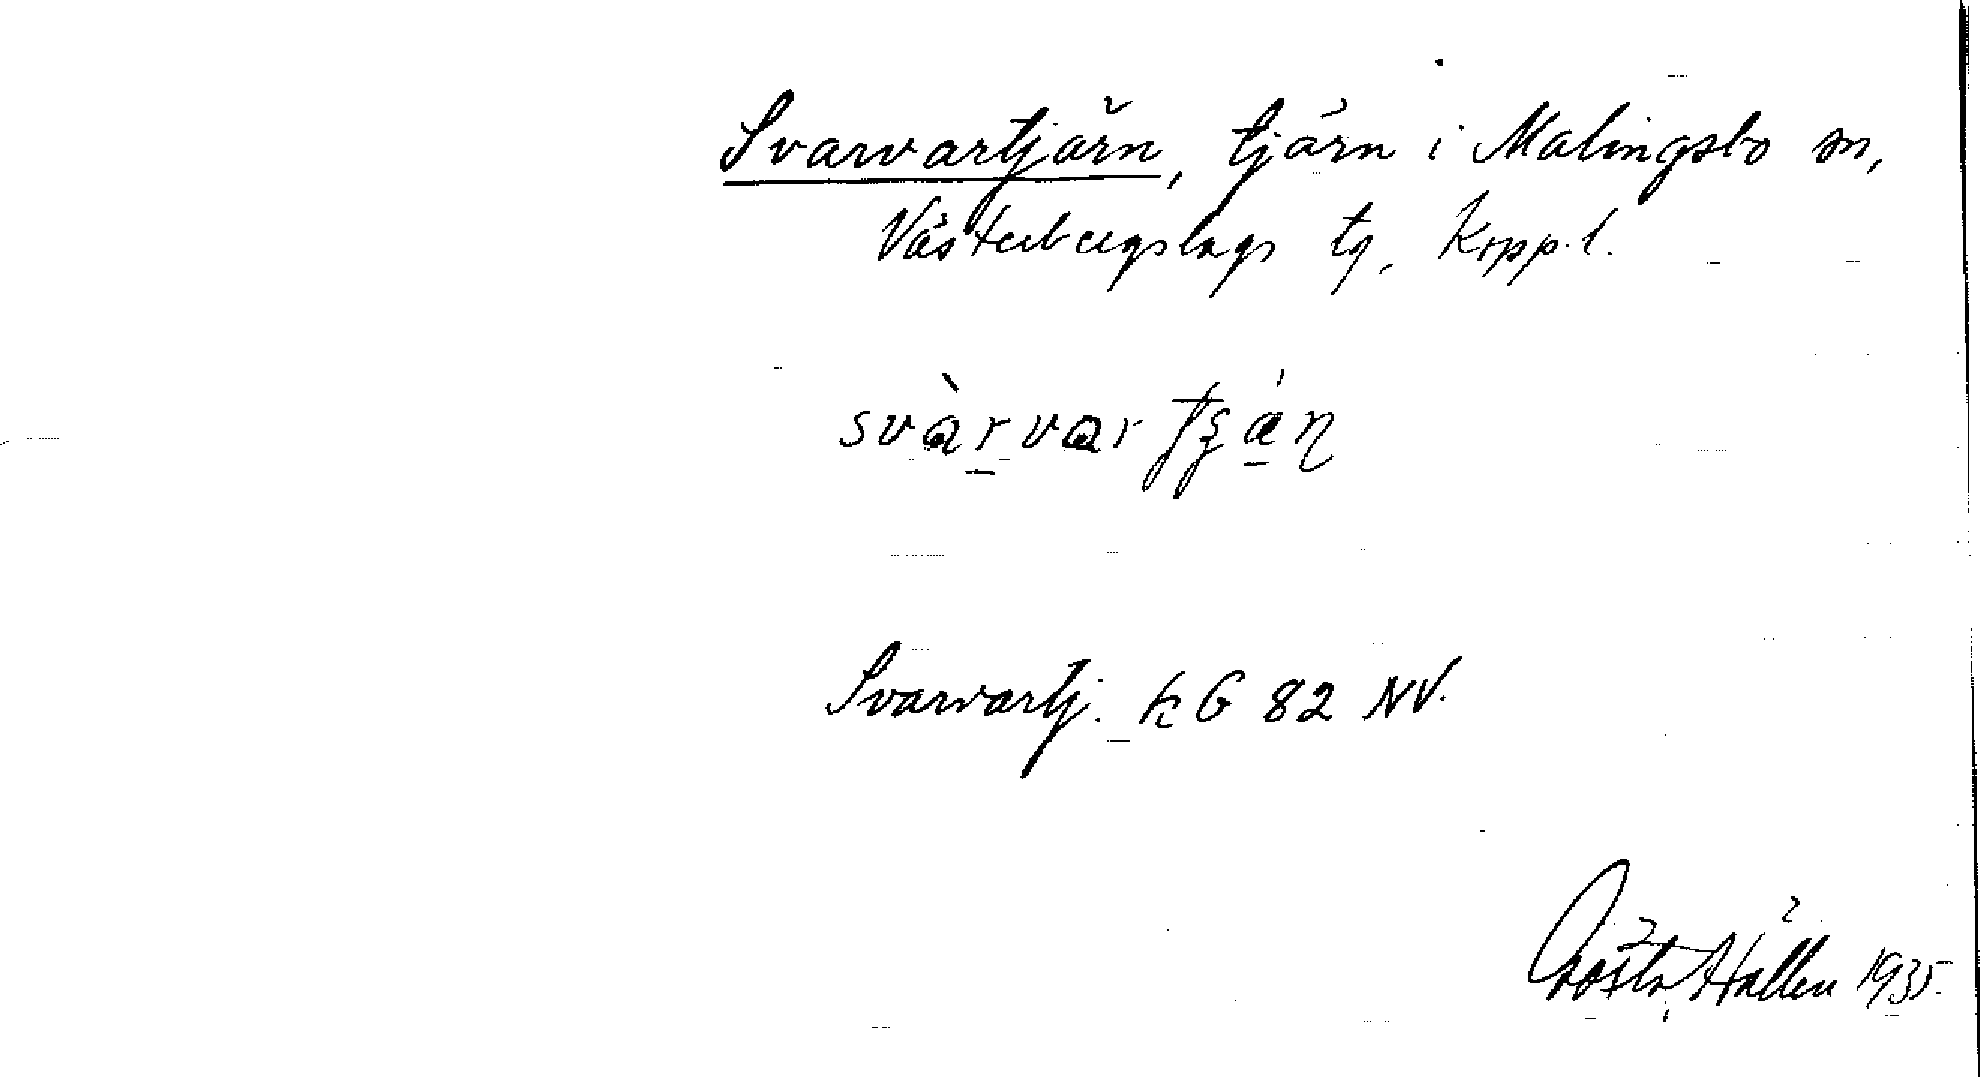 Svarvartjärn, tjärn i Malingsbo sn,
Västerbergslags tg, Kopp. l.
svàrvar
Svarvartj. kG 82 NV.
Gösta Hállen 1935.